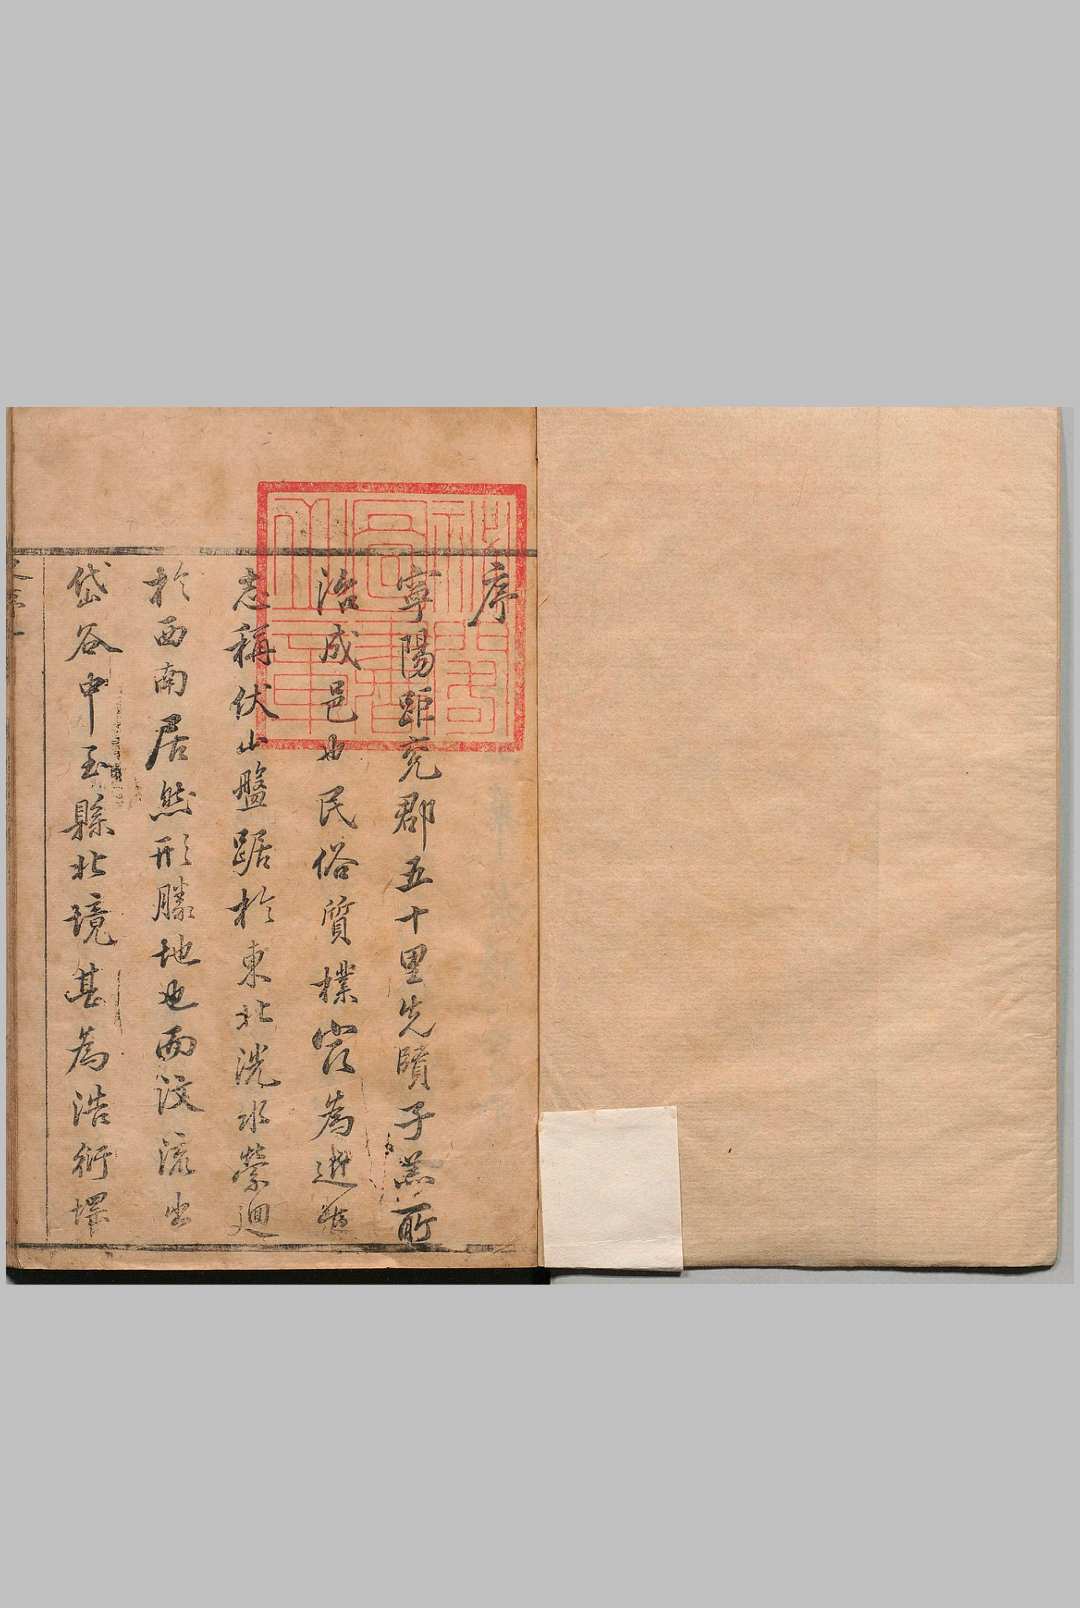 序
寧陽距兗郡五十里先賢子羔所
治成邑也民俗質樸實為近古
志稱伏山盤踞於東北洸水縈迴
於西南居然形勝地也而汶流出
岱谷中至縣北境甚為浩衍